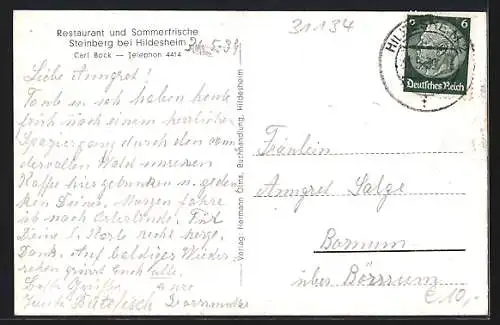 Restaurant und Sommerfrische
Steinberg bei Hildesheim
Carl Bock — Telephon 4414
31134
6 6
Deutsches Reich
Liebe Anngret!
Tante u. ich haben heute
früh nach einem herrlichen
Spaziergang durch den wun
dervollen Wald unseren
Kaffee hier getrunken u. geden
ken Deiner. Morgen fahre
ich nach Osterlinde. Für
Deine l. Karte recht herzl.
Dank. Auf baldiges Wieder
sehen grüsst Euch alle
Beste Grüße
Verlag: Hermann Olms, Buchhandlung, Hildesheim
Fräulein
Anngret Salge
Bornum
über Börssum
€ 10,-